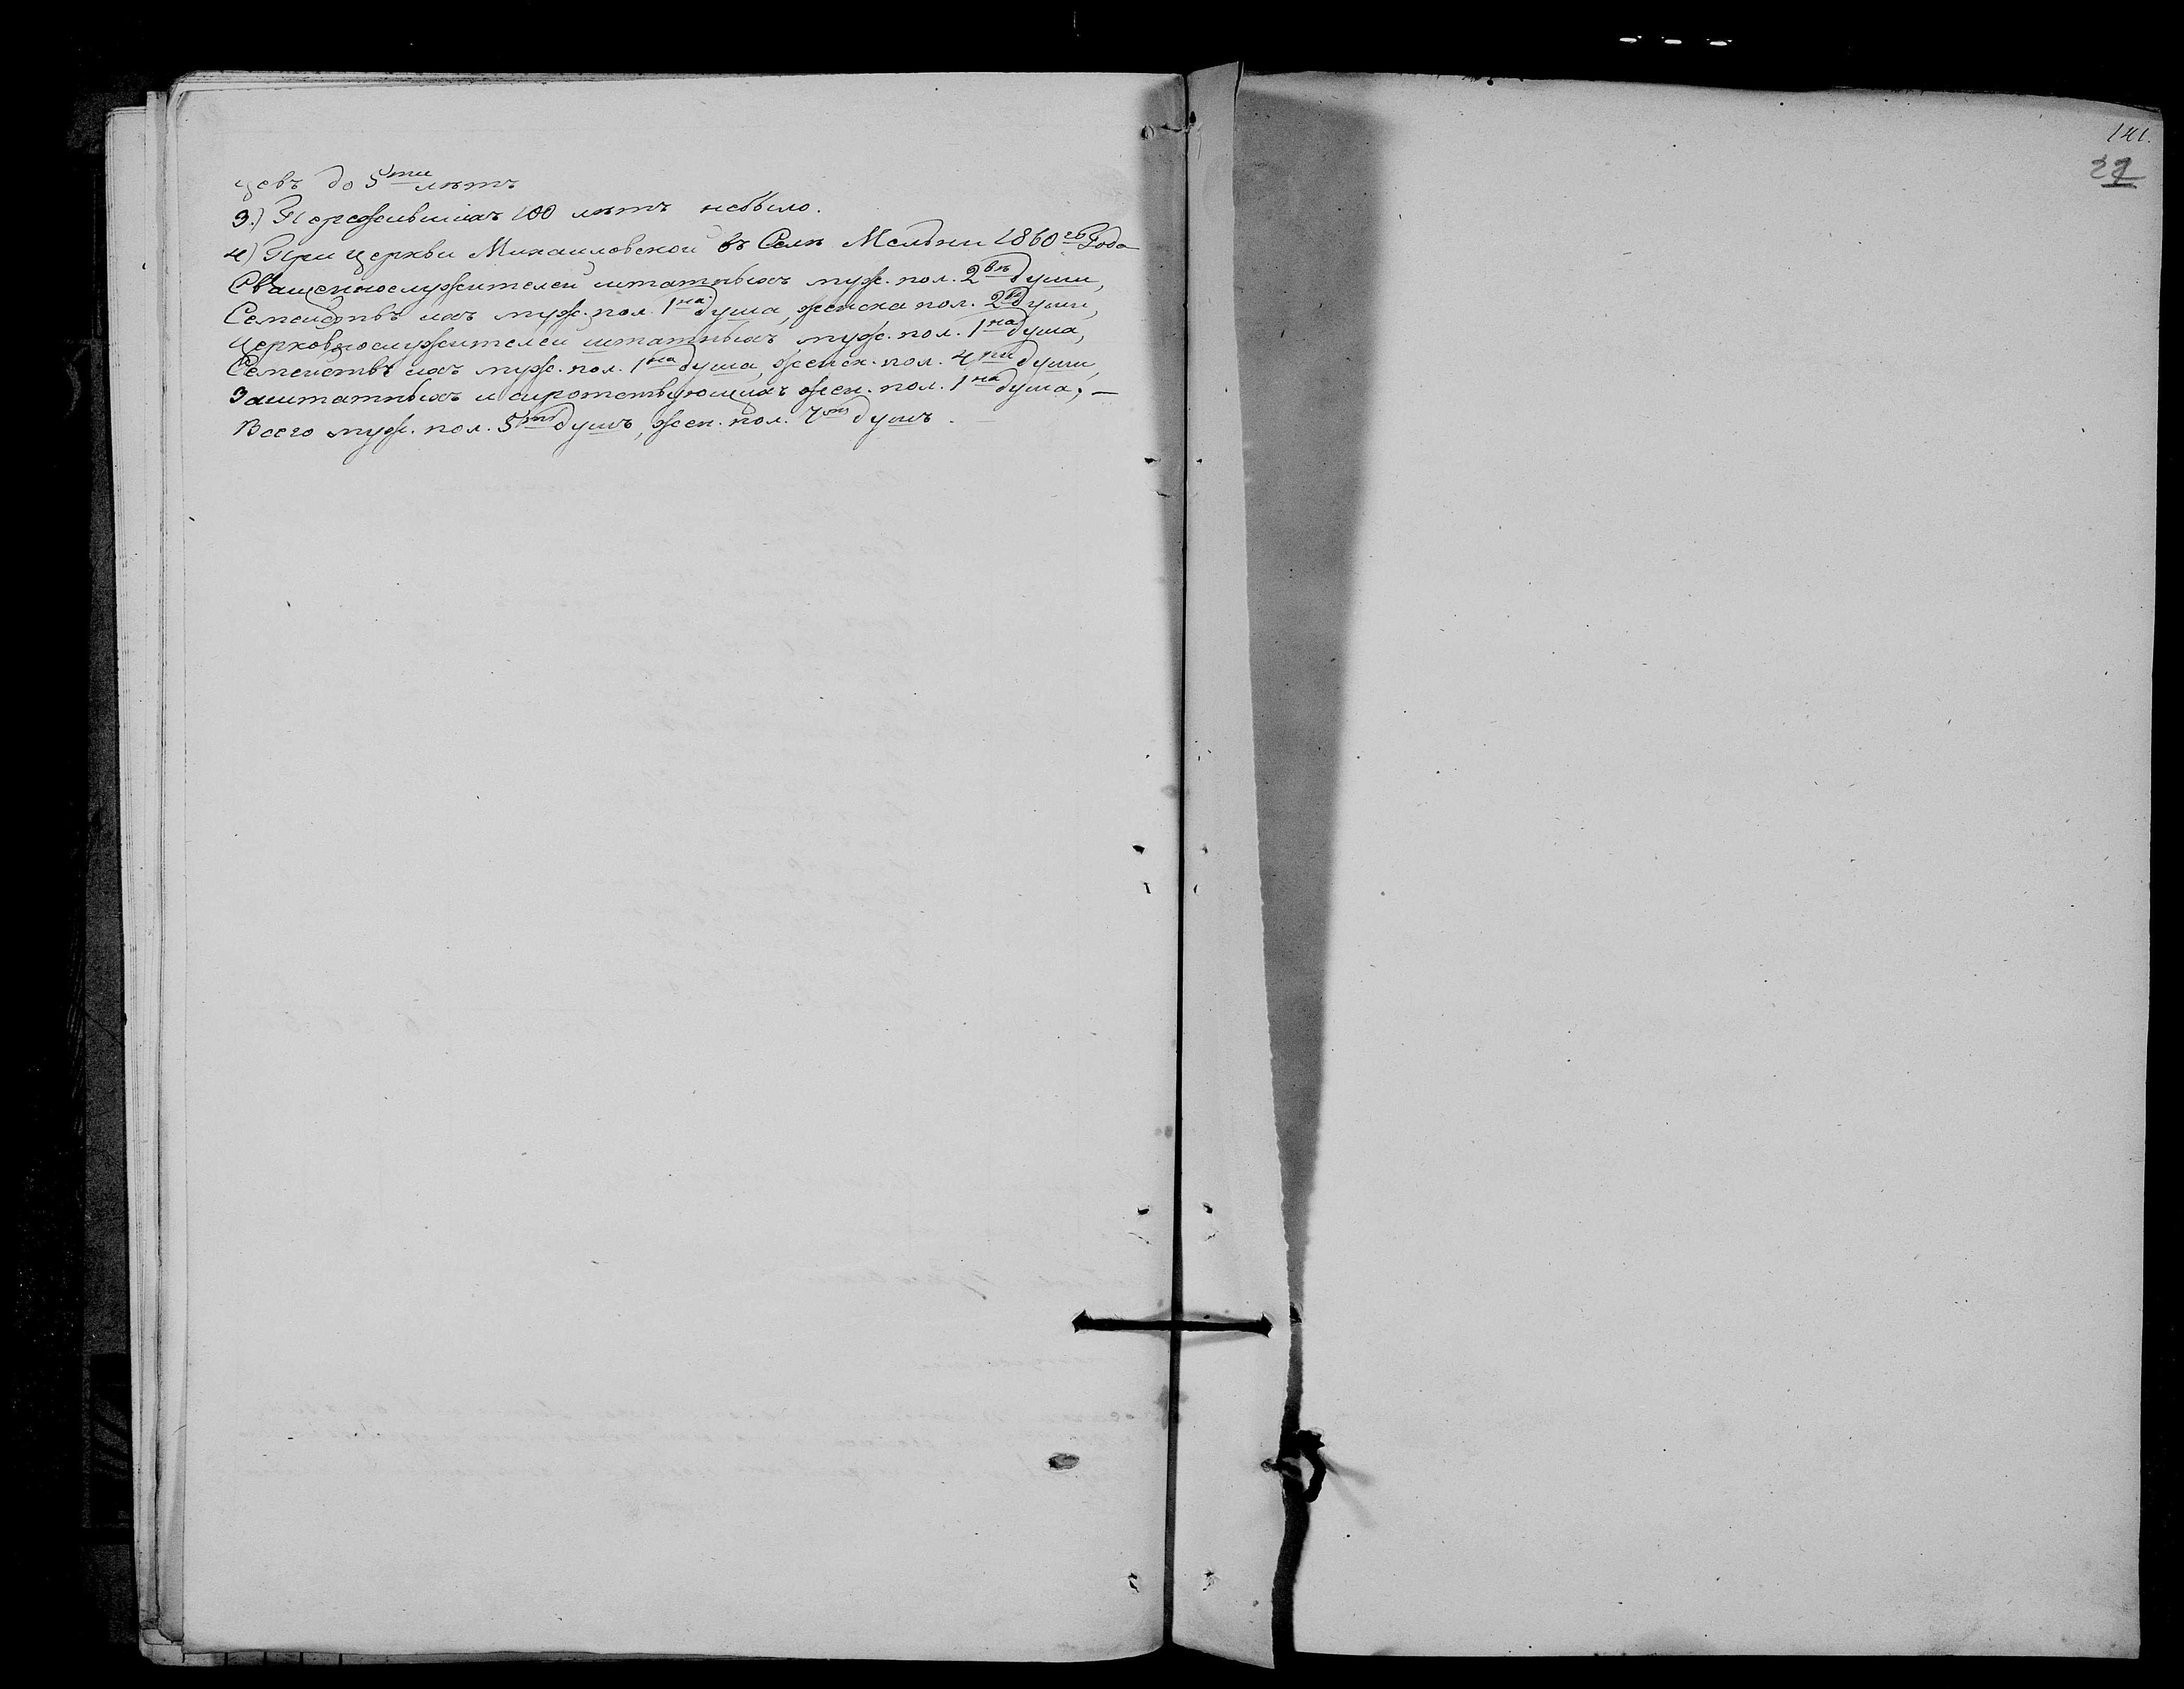 цевъ до 5ти лѣтъ
3.) Пережившихъ 100 лѣтъ небыло.
4) При церкви Михаиловской въ Селѣ Мельни 1860го Года
Священнослужителей штатныхъ муж. пол. 2вѣ души,
Семействъ ихъ муж. пол. 1на душа, женска пол. 2вѣ души,
Церковнослужителей штатныхъ муж. пол. 1на душа,
Семействъ ихъ муж. пол. 1на душа, женск. пол. 4ри души,
Заштатныхъ и сиротствующихъ жен. пол. 1на душа; —
Всего муж. пол. 5ть душъ, жен. пол. 7мь душъ.
141.